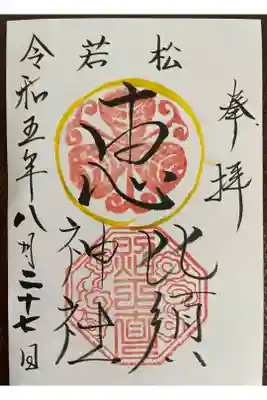 奉拝
若松
恵
比須
神社
令和五年八月二十七日